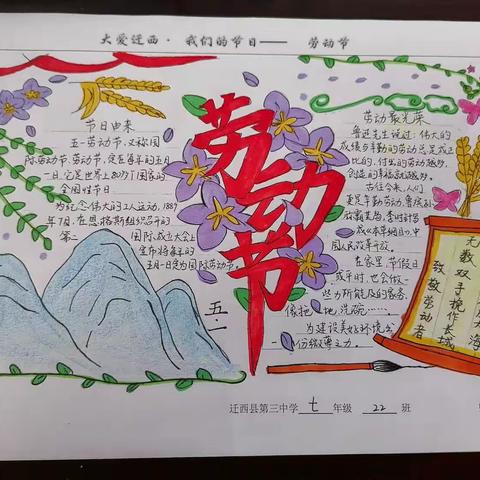 大爱迁西·我们的节日—— 劳动节
劳动节
节日由来
五一劳动节,又称国
际劳动节、劳动节,定在每年的五月
一日。它是世界上80多个国家的
全国性节日。
为纪念伟大的工人运动,1889
年7月,在恩格斯组织召开的
第二 国际成立大会上
宣布将每年的
五月一日定为国际劳动节。
五·一
劳动最光荣
鲁迅先生说过:伟大的
成绩和辛勤的劳动是成正
比的,付出的劳动越多,
创造的幸福就越多。
古往今来,人们
更是辛勤劳动,
成《本草纲目》,中
国人民改革开放。
在家里,节假日
或平时,也会做一
些力所能及的家务,
像拖 地、洗碗……
为建设美好环境出
一份微薄之力。
无数双手挽作长城
致敬劳动者
迁西县第三中学 七 年级 22 班